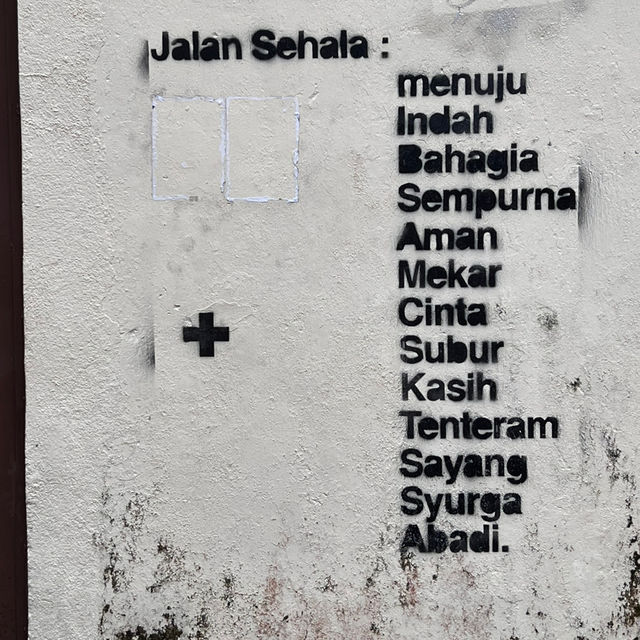 Jalan Sehala :
menuju
Indah
Bahagia
Sempurna
Aman
Mekar
Cinta
Subur
Kasih
Tenteram
Sayang
Syurga
Abadi.